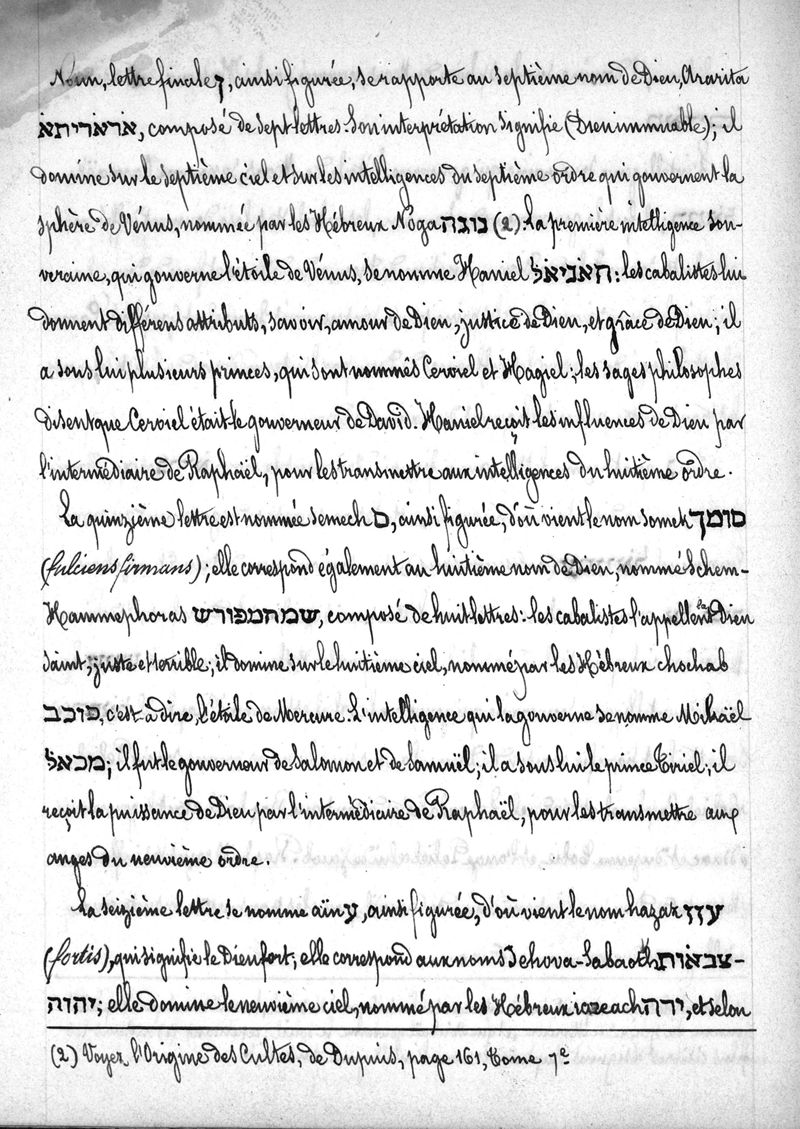 Noun, lettre finale ן, ainsi figurée, se rapporte au septième nom de Dieu, Ararita
אראריתא, composé de sept lettres. Son interprétation signifie (Dieu immuable); il
domine sur le septième ciel et sur les intelligences du septième ordre qui gouvernent la
sphère de Vénus, nommée par les Hébreux Noga נוגה (2): la première intelligence sou-
veraine, qui gouverne l'étoile de Vénus, se nomme Haniel האניאל: les cabalistes lui
donnent différens attributs, savoir, amour de Dieu, justice de Dieu, et grâce de Dieu; il
a sous lui plusieurs princes, qui sont nommés Cerviel et Hagiel; les sages philosophes
disent que Cerviel était le gouverneur de David. Haniel reçoit les influences de Dieu par
l'intermédiaire de Raphaël, pour les transmettre aux intelligences du huitième ordre.
La quinzième lettre est nommée semech ס, ainsi figurée, d'où vient le nom somek סומך
(fulciens firmans); elle correspond également au huitième nom de Dieu, nommé Schem-
Hammephoras שמחמפורש, composé de huit lettres: les cabalistes l'appellent le Dieu
saint, juste et terrible; il domine sur le huitième ciel, nommé par les Hébreux chochab
כוכב, c'est-à dire, l'étoile de Mercure. L'intelligence qui la gouverne se nomme Mikaël
מכאל; il fut le gouverneur de Salomon et de Samuël; il a sous lui le prince Tiriel; il
reçoit la puissance de Dieu par l'intermédiaire de Raphaël, pour les transmettre aux
anges du neuvième ordre.
La seizième lettre se nomme aïn ע, ainsi figurée, d'où vient le nom hazak עזז
(fortis), qui signifie le Dieu fort; elle correspond aux noms Jehova-Sabaoth צבאות-
יהוה; elle domine le neuvième ciel, nommé par les Hébreux iazeach ירה, et selon
(2) Voyez l'Origine des Cultes, de Dupuis, page 161, Tome 7e